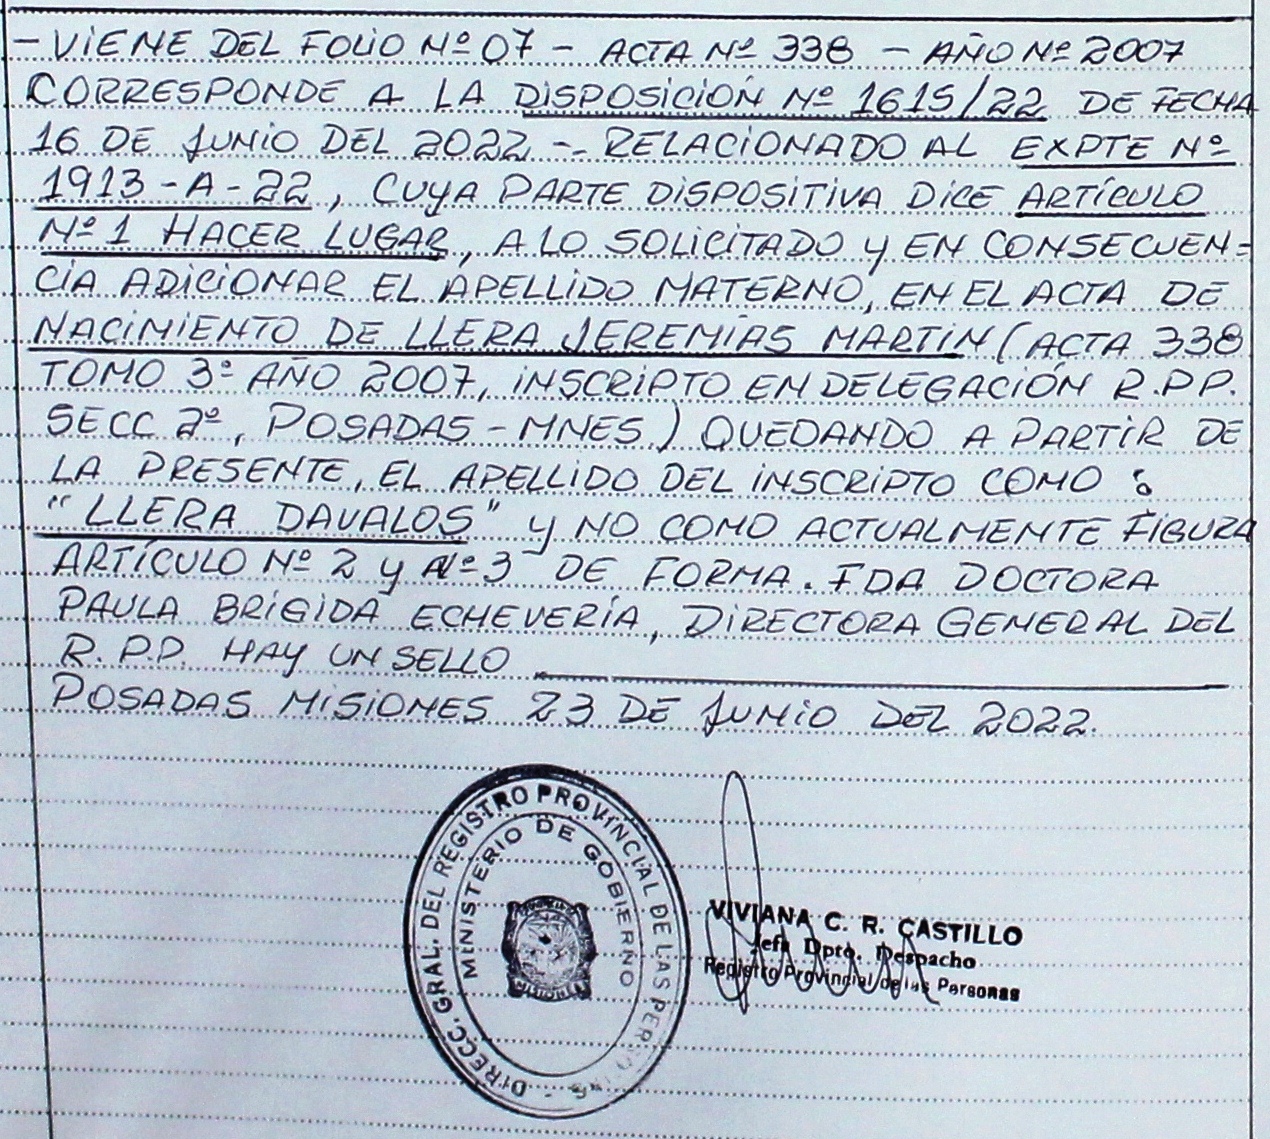 - VIENE DEL FOLIO Nº 07 - ACTA Nº 338 - AÑO Nº 2007
CORRESPONDE A LA DISPOSICIÓN Nº 1615/22 DE FECHA
16 DE JUNIO DEL 2022 -. RELACIONADO AL EXPTE Nº
1913-A-22, CUYA PARTE DISPOSITIVA DICE ARTÍCULO
Nº 1 HACER LUGAR, A LO SOLICITADO Y EN CONSECUEN=
CIA ADICIONAR EL APELLIDO MATERNO, EN EL ACTA DE
NACIMIENTO DE LLERA JEREMÍAS MARTIN (ACTA 338
TOMO 3º AÑO 2007, INSCRIPTO EN DELEGACIÓN R.P.P.
SECC 2º, POSADAS - MNES) QUEDANDO A PARTIR DE
LA PRESENTE, EL APELLIDO DEL INSCRIPTO COMO :
"LLERA DAVALOS" Y NO COMO ACTUALMENTE FIGURA
ARTÍCULO Nº 2 Y Nº 3 DE FORMA. FDA DOCTORA
PAULA BRIGIDA ECHEVERÍA, DIRECTORA GENERAL DEL
R.P.P. HAY UN SELLO
POSADAS MISIONES 23 DE JUNIO DEL 2022.
DIRECC. GRAL. DEL REGISTRO PROVINCIAL DE LAS PERSONAS
MINISTERIO DE GOBIERNO
VIVIANA C. R. CASTILLO
Jefa Dpto. Despacho
Registro Provincial de las Personas